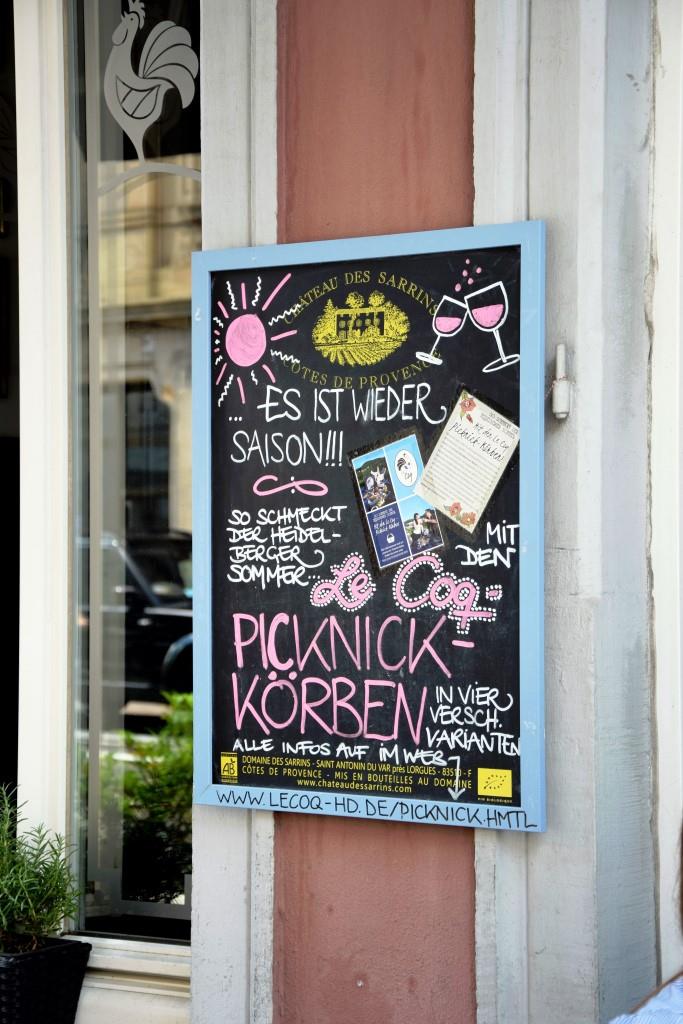 CHÂTEAU DES SARRINS
CÔTES DE PROVENCE
... ES IST WIEDER
SAISON!!!
Picknick Körben
Coq
SO SCHMECKT
DER HEIDEL-
BERGER
SOMMER
MIT
DEN
Le Coq-
PICKNICK-
KÖRBEN
IN VIER
VERSCH.
VARIANTEN
ALLE INFOS AUF IM WEB
AB
DOMAINE DES SARRINS - SAINT ANTONIN DU VAR près LORGUES - 83510 - F
CÔTES DE PROVENCE - MIS EN BOUTEILLES AU DOMAINE
www.chateaudessarrins.com
WWW.LECOQ-HD.DE/PICKNICK.HMTL